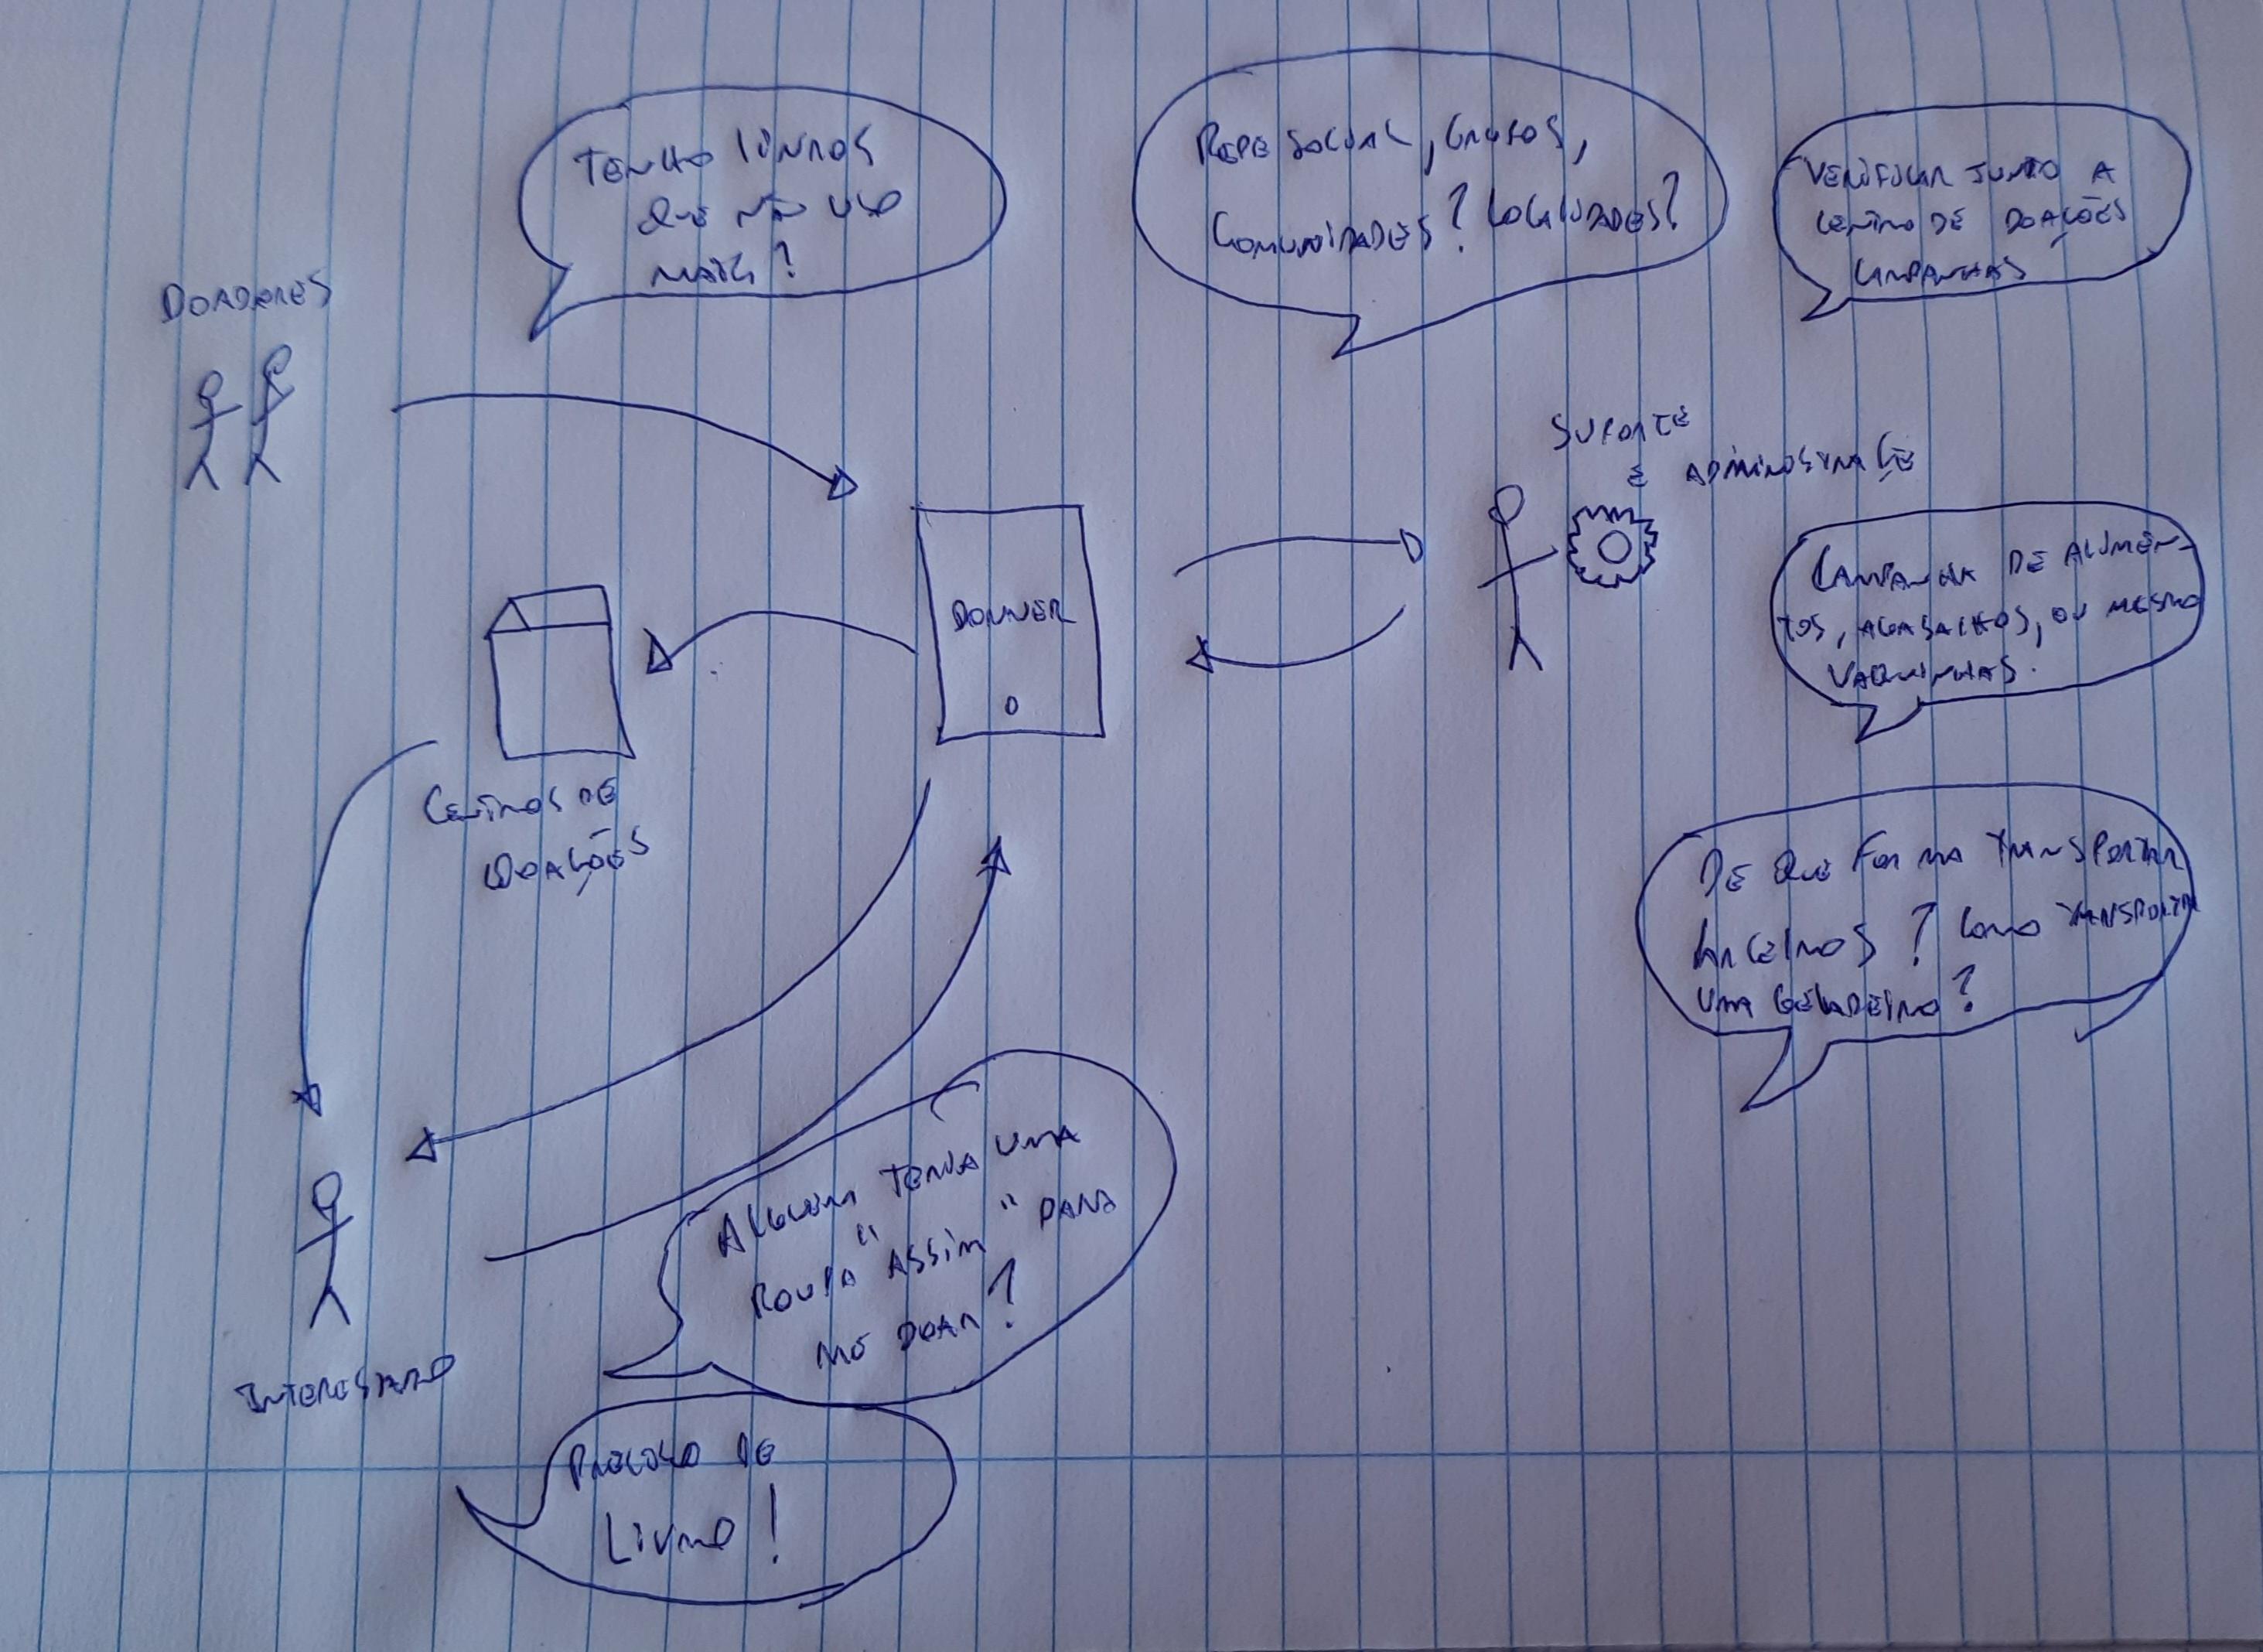 TENHO LIVROS
QUE NÃO USO
MAIS?
REDE SOCIAL, GRUPOS,
COMUNIDADES? LOCALIDADES?
VERIFICAR JUNTO A
CENTRO DE DOAÇÕES
CAMPANHAS
DOADORES
SUPORTE
E ADMINISTRAÇÃO
DONNER
CAMPANHA DE ALIMEN-
TOS, AGASALHOS, OU MESMO
VAQUINHAS.
CENTROS DE
DOAÇÕES
DE QUE FORMA TRANSPORTAR
? COMO TRANSPORTAR
UMA GELADEIRA?
ALGUEM TERIA UMA
ROUPA "ASSIM" PARA
ME DOAR?
INTERESSADO
PRECISO DE
LIVRO!